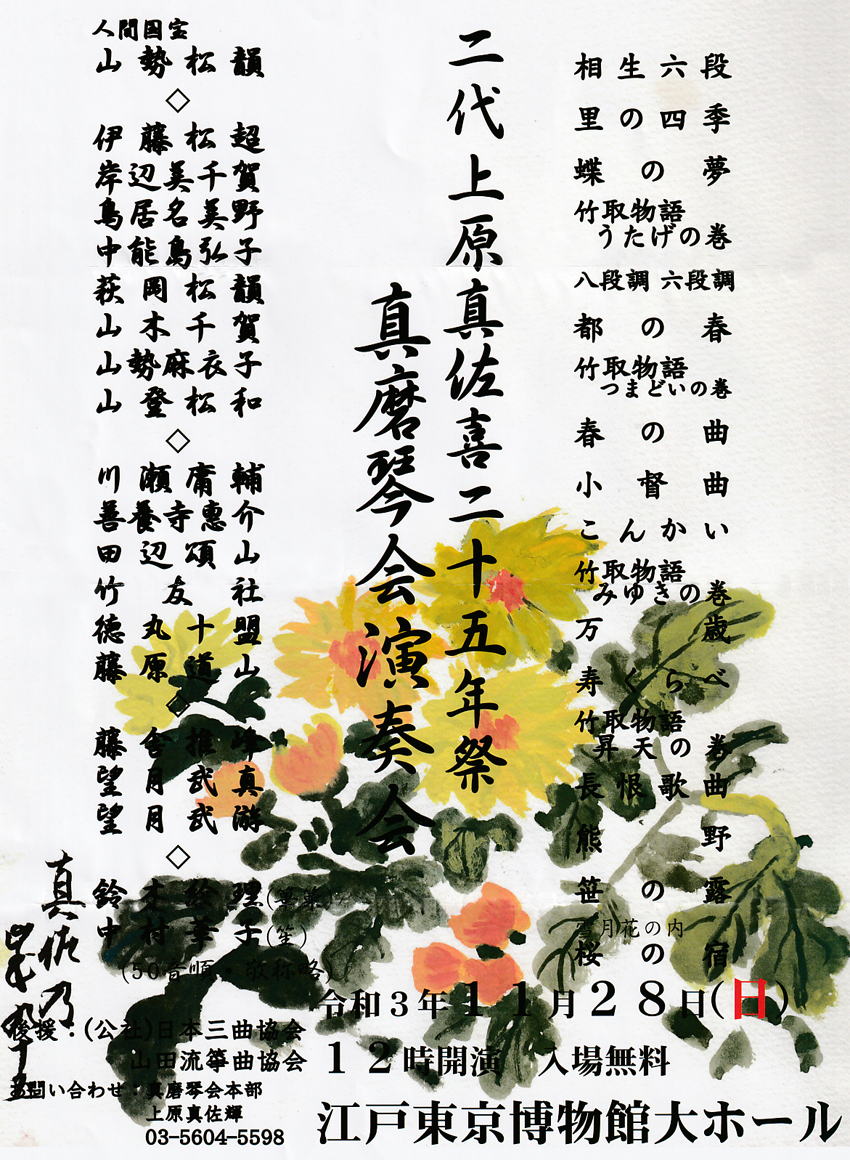 相生六段
里の四季
蝶の夢
竹取物語
うたげの巻
八段調 六段調
都の春
竹取物語
つまどいの巻
春の曲
小督曲
こんかい
竹取物語
みゆきの巻
万歳
寿くらべ
竹取物語
昇天の巻
長恨歌曲
熊野
笹の露
雪月花の内
桜の宿
二代上原真佐喜二十五年祭
真磨琴会演奏会
人間国宝
山勢松韻
◇
伊藤松超
岸辺美千賀
鳥居名美野
中能島弘子
萩岡松韻
山木千賀
山勢麻衣子
山登松和
◇
川瀬庸輔
善養寺惠介
田辺頌山
竹友社
徳丸十盟
藤原道山
◇
藤舎推峰
望月武真
望月武游
◇
鈴木絵理(篳篥)
中村華子(笙)
(50音順・敬称略)
真佐乃
後援:(公社)日本三曲協会
山田流箏曲協会
お問い合わせ:真磨琴会本部
上原真佐輝
03-5604-5598
令和3年11月28日(日)
12時開演 入場無料
江戸東京博物館大ホール